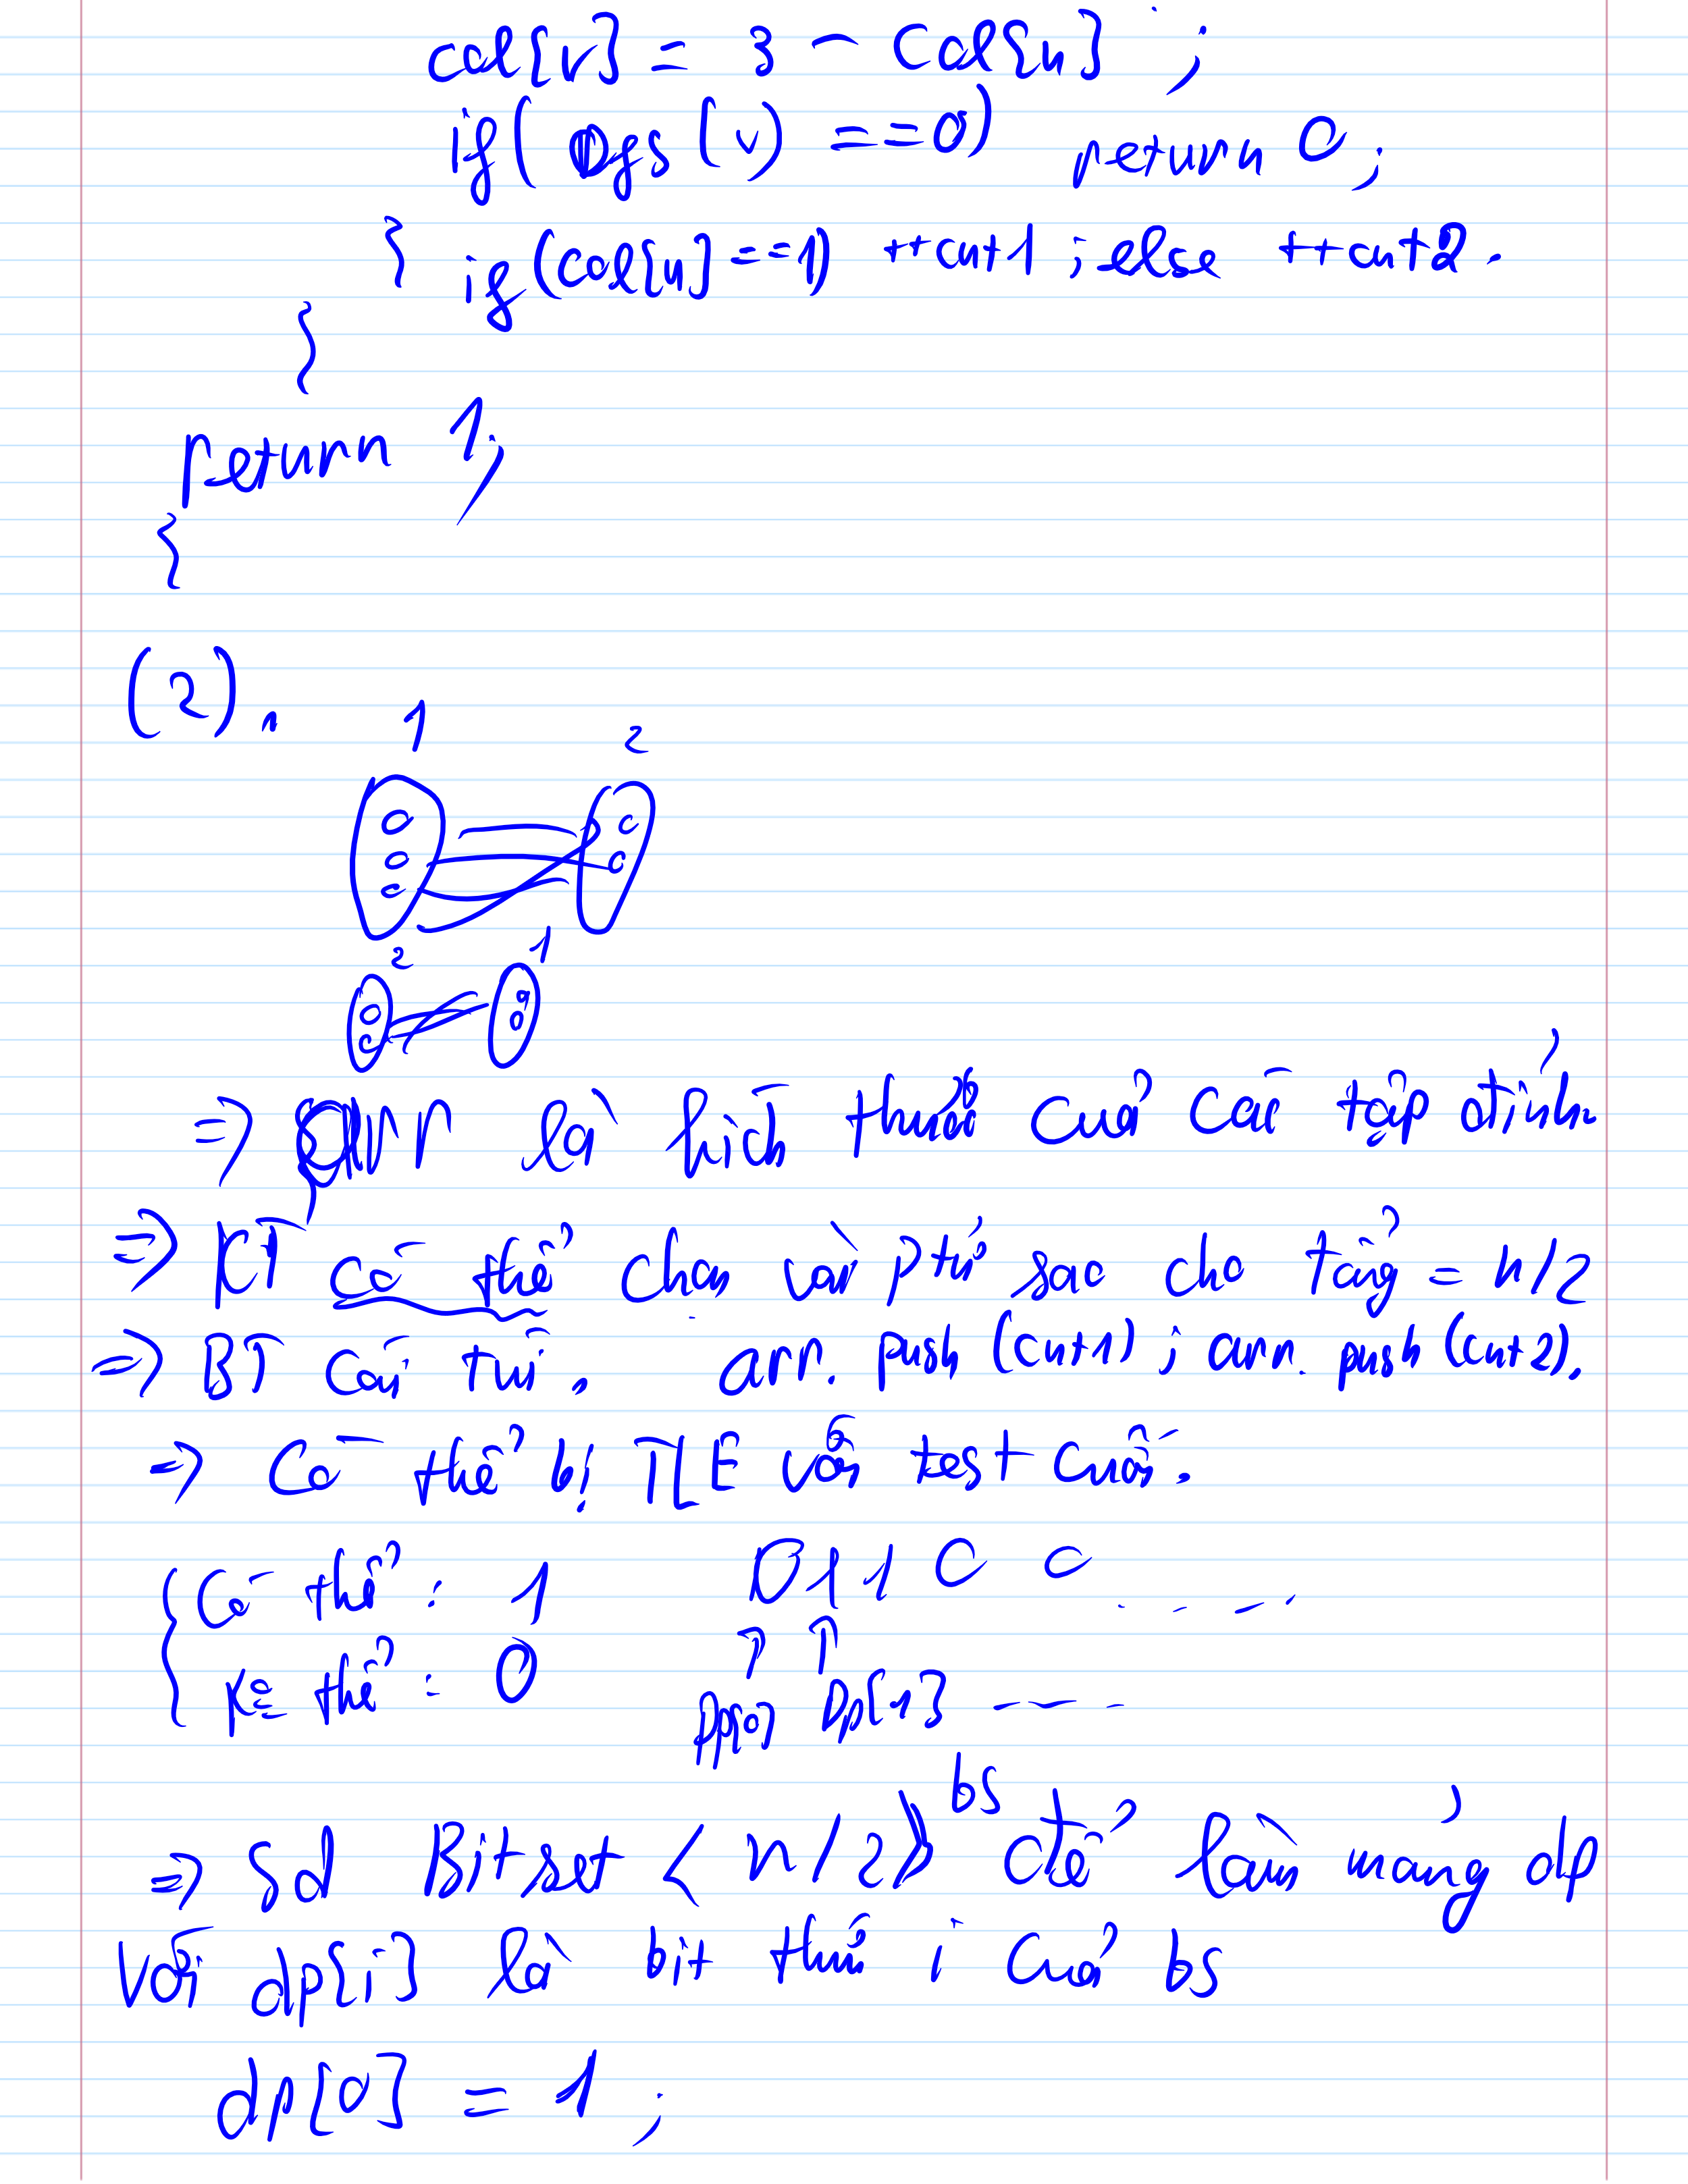 col[v] = 3 - col[u] ;
if( dfs(v) == 0) return 0;
} if(col[u] == 1) ++cnt1 ; else ++cnt2.
}
return 1;
}
(2).
1 2
2 1
=> là kích thước của các tập đỉnh.
=> KT có thể chọn vài ptử sao cho tổng = n/2
=> BT cái túi. arr.push(cnt1) ; arr.push(cnt2).
=> Có thể bị TLE với test cuối.
Có thể : 1 0 1 1 0 0 ....
K thể : 0
Dp[0] Dp[1] ....
=> Sd Bitset < n/2> bs để làm mảng dp
Với dp[i] là bit thứ i của bs
dp[0] = 1 ;